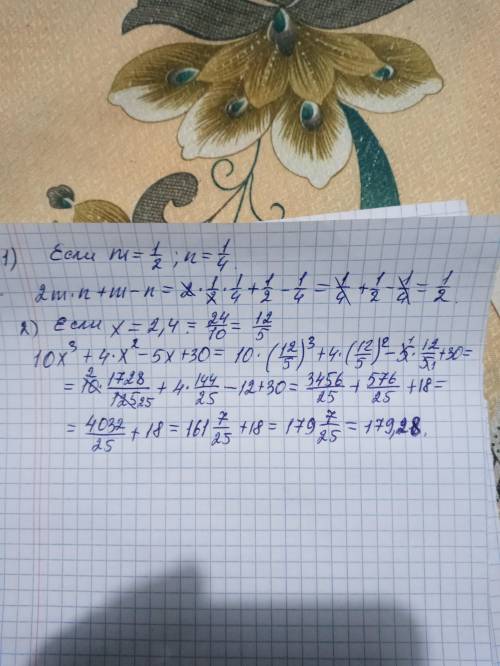 1) Если m = 1/2 ; n = 1/4.
2m·n + m - n = 2·1/2·1/4 + 1/2 - 1/4 = 1/4 + 1/2 - 1/4 = 1/2.
2) Если x = 2,4 = 24/10 = 12/5
10x³ + 4·x² - 5x + 30 = 10·(12/5)³ + 4·(12/5)² - 5·12/5 + 30 =
= 10·1728/125 + 4·144/25 - 12 + 30 = 3456/25 + 576/25 + 18 =
= 4032/25 + 18 = 161 7/25 + 18 = 179 7/25 = 179,28.